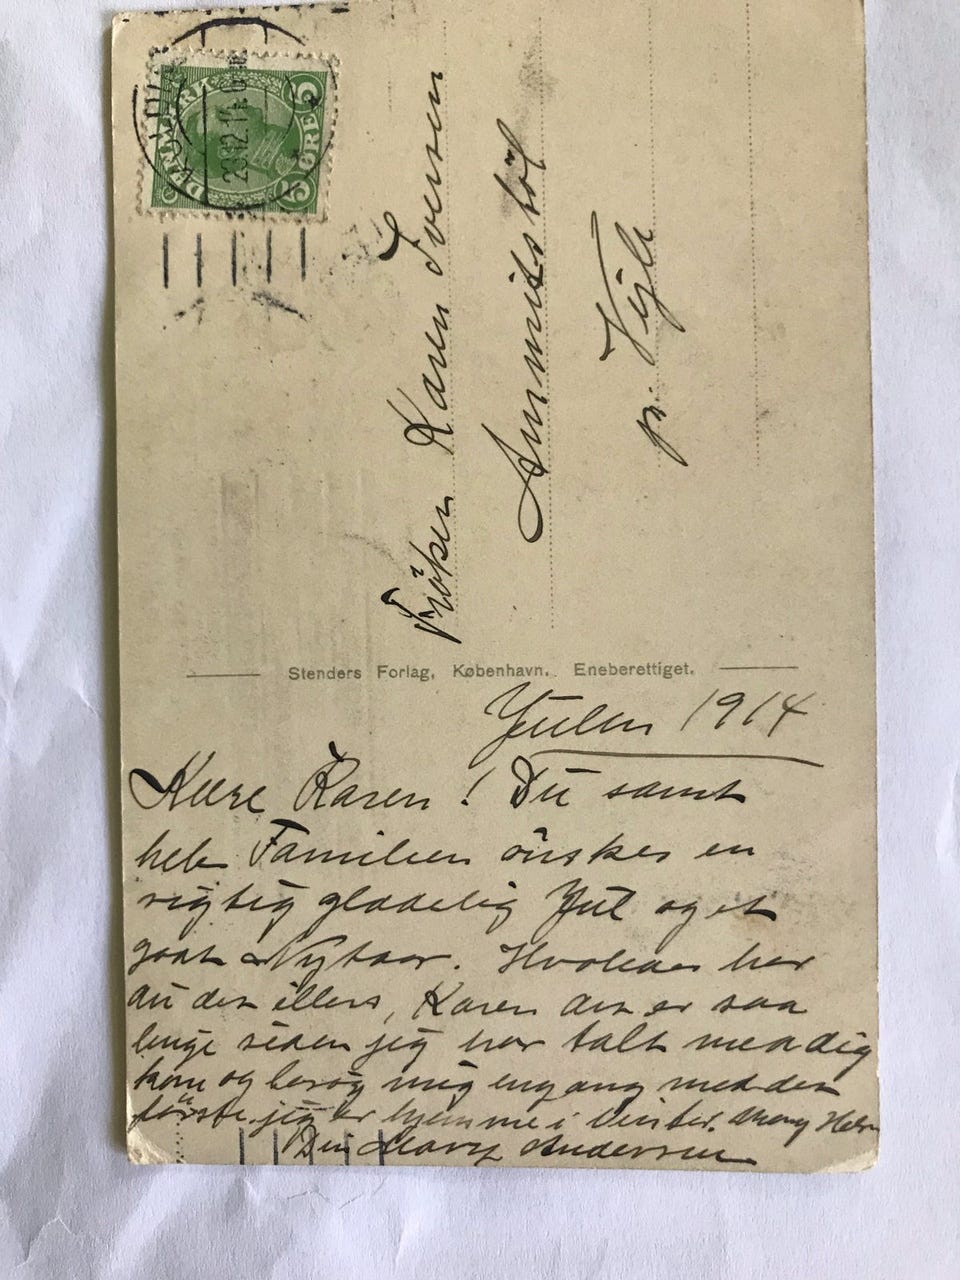 DANMARK
5 ØRE 5
23.12.14
Frøken Karen Iversen
Ammitsböl
pr. Vejle
Stenders Forlag, København. Eneberettiget.
Julen 1914
Kære Karen! Du samt
hele Familien önskes en
rigtig glædelig Jul og et
godt Nytaar. Hvoledes har
du det illers, Karen det er saa
lenge siden jeg har talt med dig
kom og besög mig engang med det
förste. jeg er hjemme i Vinter. Mang Hels
Din Mary Andersen